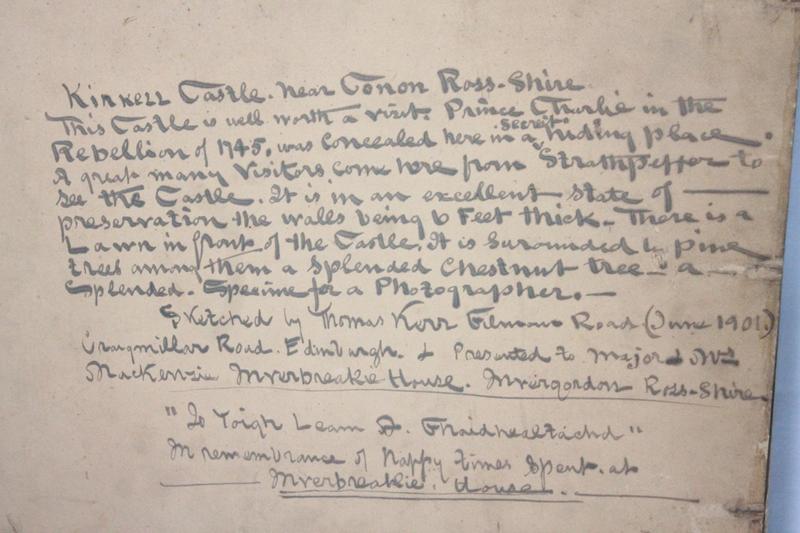 Kinkell Castle. near Conon Ross-Shire
This Castle is well worth a visit. Prince Charlie in the
Rebellion of 1745, was Concealed here in a Secret hiding place.
A great many visitors come here from Strathpeffer to
See the Castle. It is in an excellent state of
preservation the walls being 6 feet thick. There is a
Lawn in front of the Castle. It is Surounded by pine
trees among them a Splended Chestnut tree - a
Splended. Specime for a Photographer. -
Sketched by Thomas Kerr Gilmour Road (June 1901)
Craigmillar Road. Edinburgh. & Presented to Major & Mrs
MacKenzie Inverbreakie House. Invergordon Ross-Shire.
" Is Toigh Leam A. Ghaidhealtachd "
In remembrance of happy times Spent. at
Inverbreakie. House.